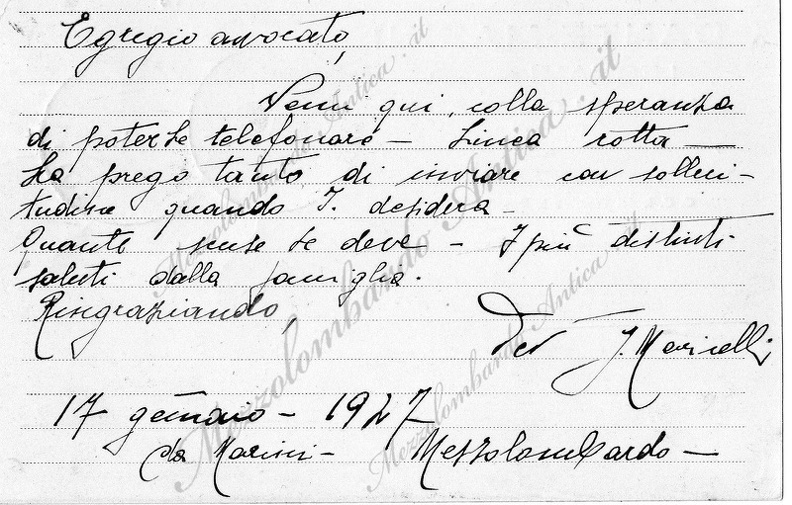 Egregio avvocato,
Venni qui, colla speranza
di poterLe telefonare – Linea rotta —
La prego tanto di inviare con solleci –
tudine quando I. desidera –
Quante scuse Le deve – I più distinti
saluti dalla famiglia.
Ringraziando,
Dev J. Marinelli
17 gennaio – 1927
da Marini – Mezzolombardo –
Mezzolombardo Antica.it
Mezzolombardo Antica.it